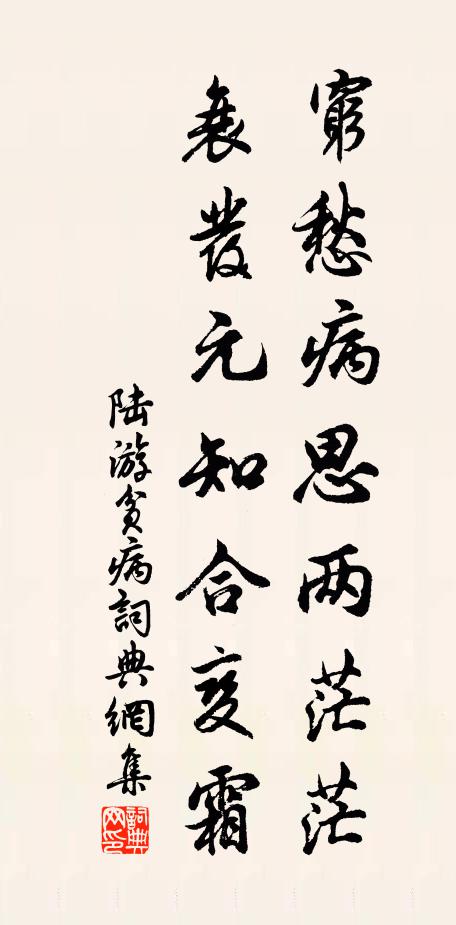 窮愁病思两茫茫
衰发元知合变霜
陆游贫病詞典網集
詞典网印